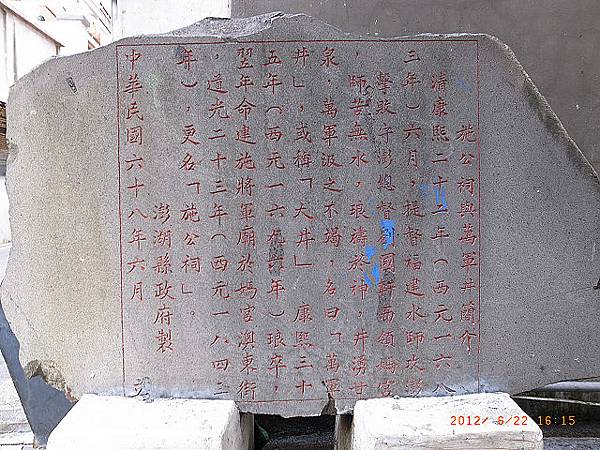 施公祠與萬軍井簡介
清康熙二十二年(西元一六八
三年)六月，提督福建水師攻澎
擊敗予澎總督劉國軒而領媽宮
，師苦無水，琅禱於神，井湧甘
泉，萬軍汲之不竭，名曰「萬軍
井」，或稱「大井」。康熙三十
五年(西元一六九六年)琅卒，
翌年命建施將軍廟於媽宮澳東街
，道光二十三年(西元一八四三
年)，更名「施公祠」。
澎湖縣政府製
中華民國六十八年六月
2012/ 6/22 16:15